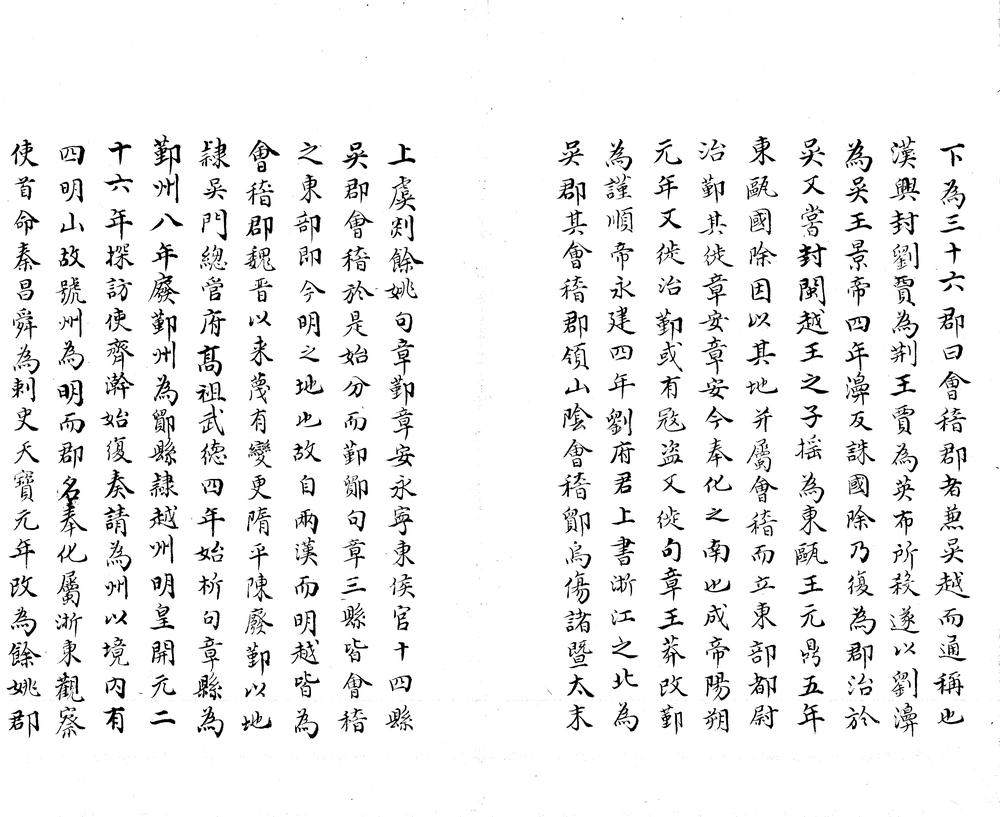 下為三十六郡曰會稽郡者蒹吳越而通稱也
漢興封劉賈為荆王賈為英布所殺遂以劉濞
為吳王景帝四年濞反誅國除乃復為郡治於
吳又嘗封閩越王之子揺為東甌王元鼎五年
東甌國除因以其地并屬會稽而立東部都尉
治鄞其徙章安章安今奉化之南也成帝陽朔
元年又徙治鄞或有冦盜又徙句章王莽改鄞
為謹順帝永建四年劉府君上書浙江之北為
吳郡其會稽郡領山陰會稽鄮烏傷諸暨太末
上虞剡餘姚句章鄞章安永寧東侯官十四縣
吳郡會稽於是始分而鄞鄮句章三縣皆會稽
之東部即今明之地也故自兩漢而明越皆為
會稽郡魏晋以来蔑有變更隋平陳廢鄞以地
隷吳門總管府髙祖武德四年始析句章縣為
鄞州八年廢鄞州為鄮縣隷越州明皇開元二
十六年採訪使齊澣始復奏請為州以境内有
四明山故號州為明而郡名奉化屬浙東觀察
使首命秦昌舜為刺史天寶元年改為餘姚郡